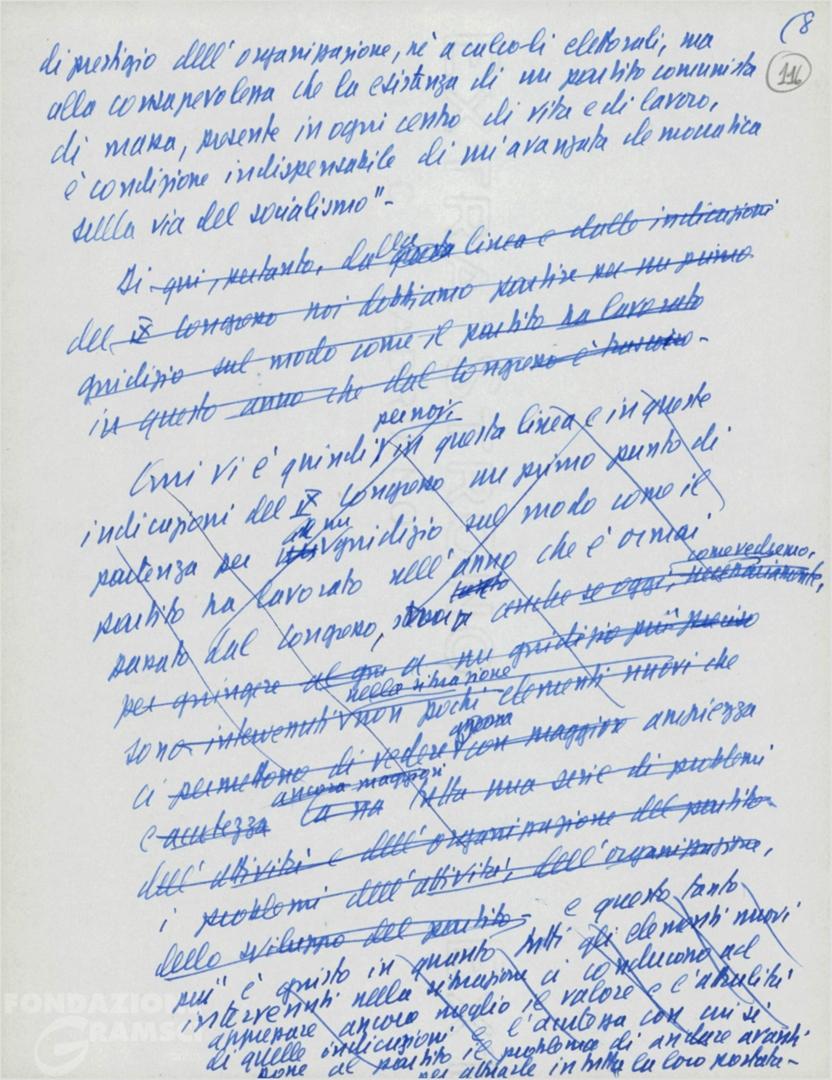 (8
116
di prestigio dell'organizzazione, nè a calcoli elettorali, ma
alla consapevolezza che la esistenza di un partito comunista
di massa, presente in ogni centro di vita e di lavoro,
è condizione indispensabile di un'avanzata democratica
sulla via del socialismo"-
Di qui, pertanto, dalla questa linea e dalle indicazioni
del IX Congresso noi dobbiamo partire per un primo
giudizio sul modo come il partito ha lavorato
in questo anno che dal Congresso è trascorso-
per noi
Ormai vi è quindi in questa linea e in queste
indicazioni del IX Congresso un primo punto di
ad un
partenza per giudizio sul modo come il
partito ha lavorato nell'anno che è ormai
tanto come vedremo,
passato dal Congresso, anche se oggi, necessariamente,
per giungere al qui a un giudizio più preciso
nella situazione
sono intervenuti non pochi elementi nuovi che
ancora
ci permettono di vedere con maggiore ampiezza
ancora maggiori
e acutezza tutta una serie di problemi
dell'attività e dell'organizzazione del partito-
i problemi dell'attività, dell'organizzazione,
dello sviluppo del partito- e questo tanto
più è giusto in quanto tutti gli elementi nuovi
intervenuti nella situazione ci conducono ad
apprezzare ancora meglio il valore e l'attualità
di quelle indicazioni e l'acutezza con cui si
pone al partito il problema di andare avanti
per attuarle in tutta la loro portata-
FONDAZIONE
GRAMSCI